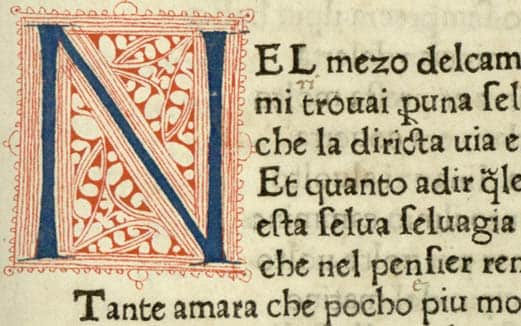 NEL mezo delcam
mi trouai ꝑuna ſel
che la diricta uia e
Et quanto adir q̃le
eſta ſelua ſeluagia
che nel penſier ren
Tante amara che pocho piu mo